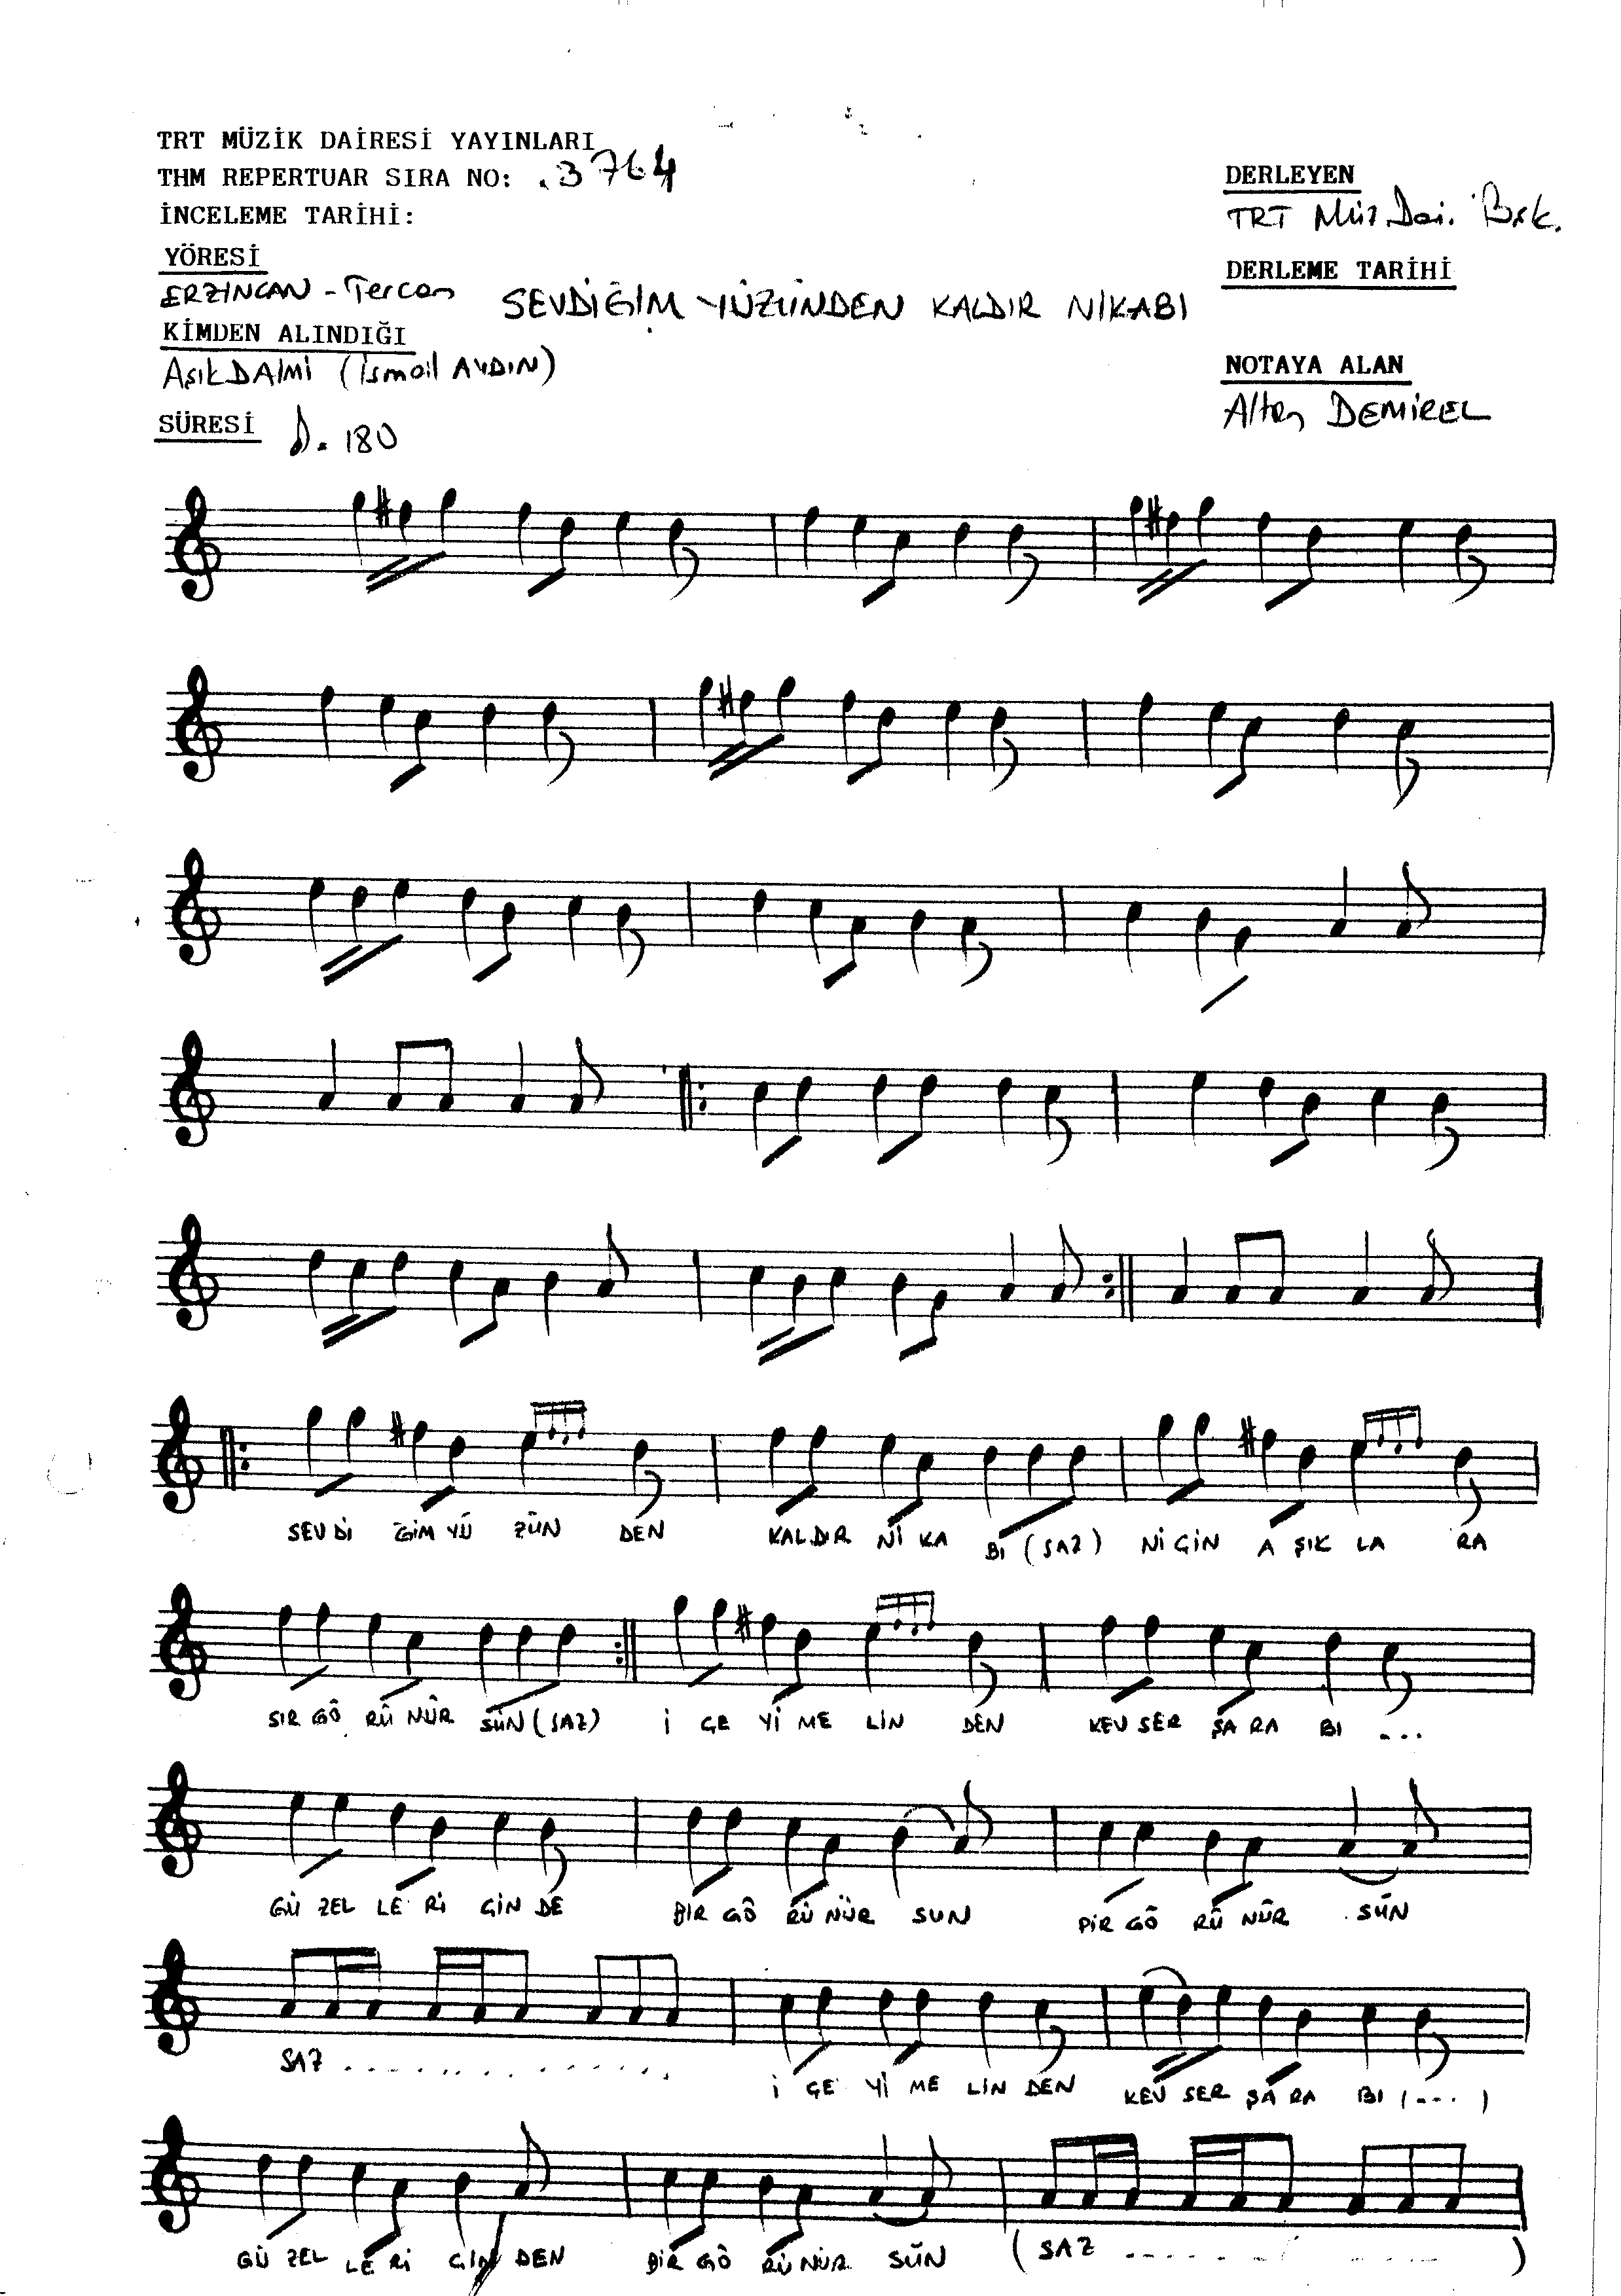 TRT MÜZİK DAİRESİ YAYINLARI
THM REPERTUAR SIRA NO: .3764
İNCELEME TARİHİ:
YÖRESİ
ERZİNCAN - Tercan
KİMDEN ALINDIĞI
AşıkDAİMİ (İsmail AYDIN)
SÜRESİ
180
DERLEYEN
TRT Müz.Dai. Bşk.
DERLEME TARİHİ
SEVDİĞİM YÜZÜNDEN KALDIR NİKABI
NOTAYA ALAN
Altan DEMİREL
SEV Dİ ĞİM YÜ ZÜN DEN KAL DIR Nİ KA BI (SAZ) Nİ ÇİN A ŞIK LA RA
SIR GÖ RÜ NÜR SÜN (SAZ) İ ÇE Yİ M E LİN DEN KEV SER ŞA RA BI ...
GÜ ZEL LE Rİ ÇİN DE BİR GÖ RÜ NÜR SUN BİR GÖ RÜ NÜR SÜN
SAZ . . . . . . . . . . . . İ ÇE Yİ ME LİN DEN KEV SER ŞA RA BI (....)
GÜ ZEL LE Rİ ÇİN DEN BİR GÖ RÜ NÜR SÜN (SAZ . . . . . . . . . .)